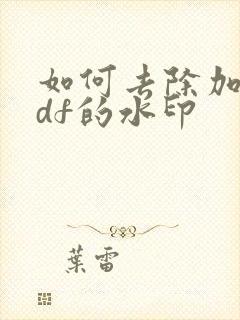 如何去除加
df的水印
葉雷